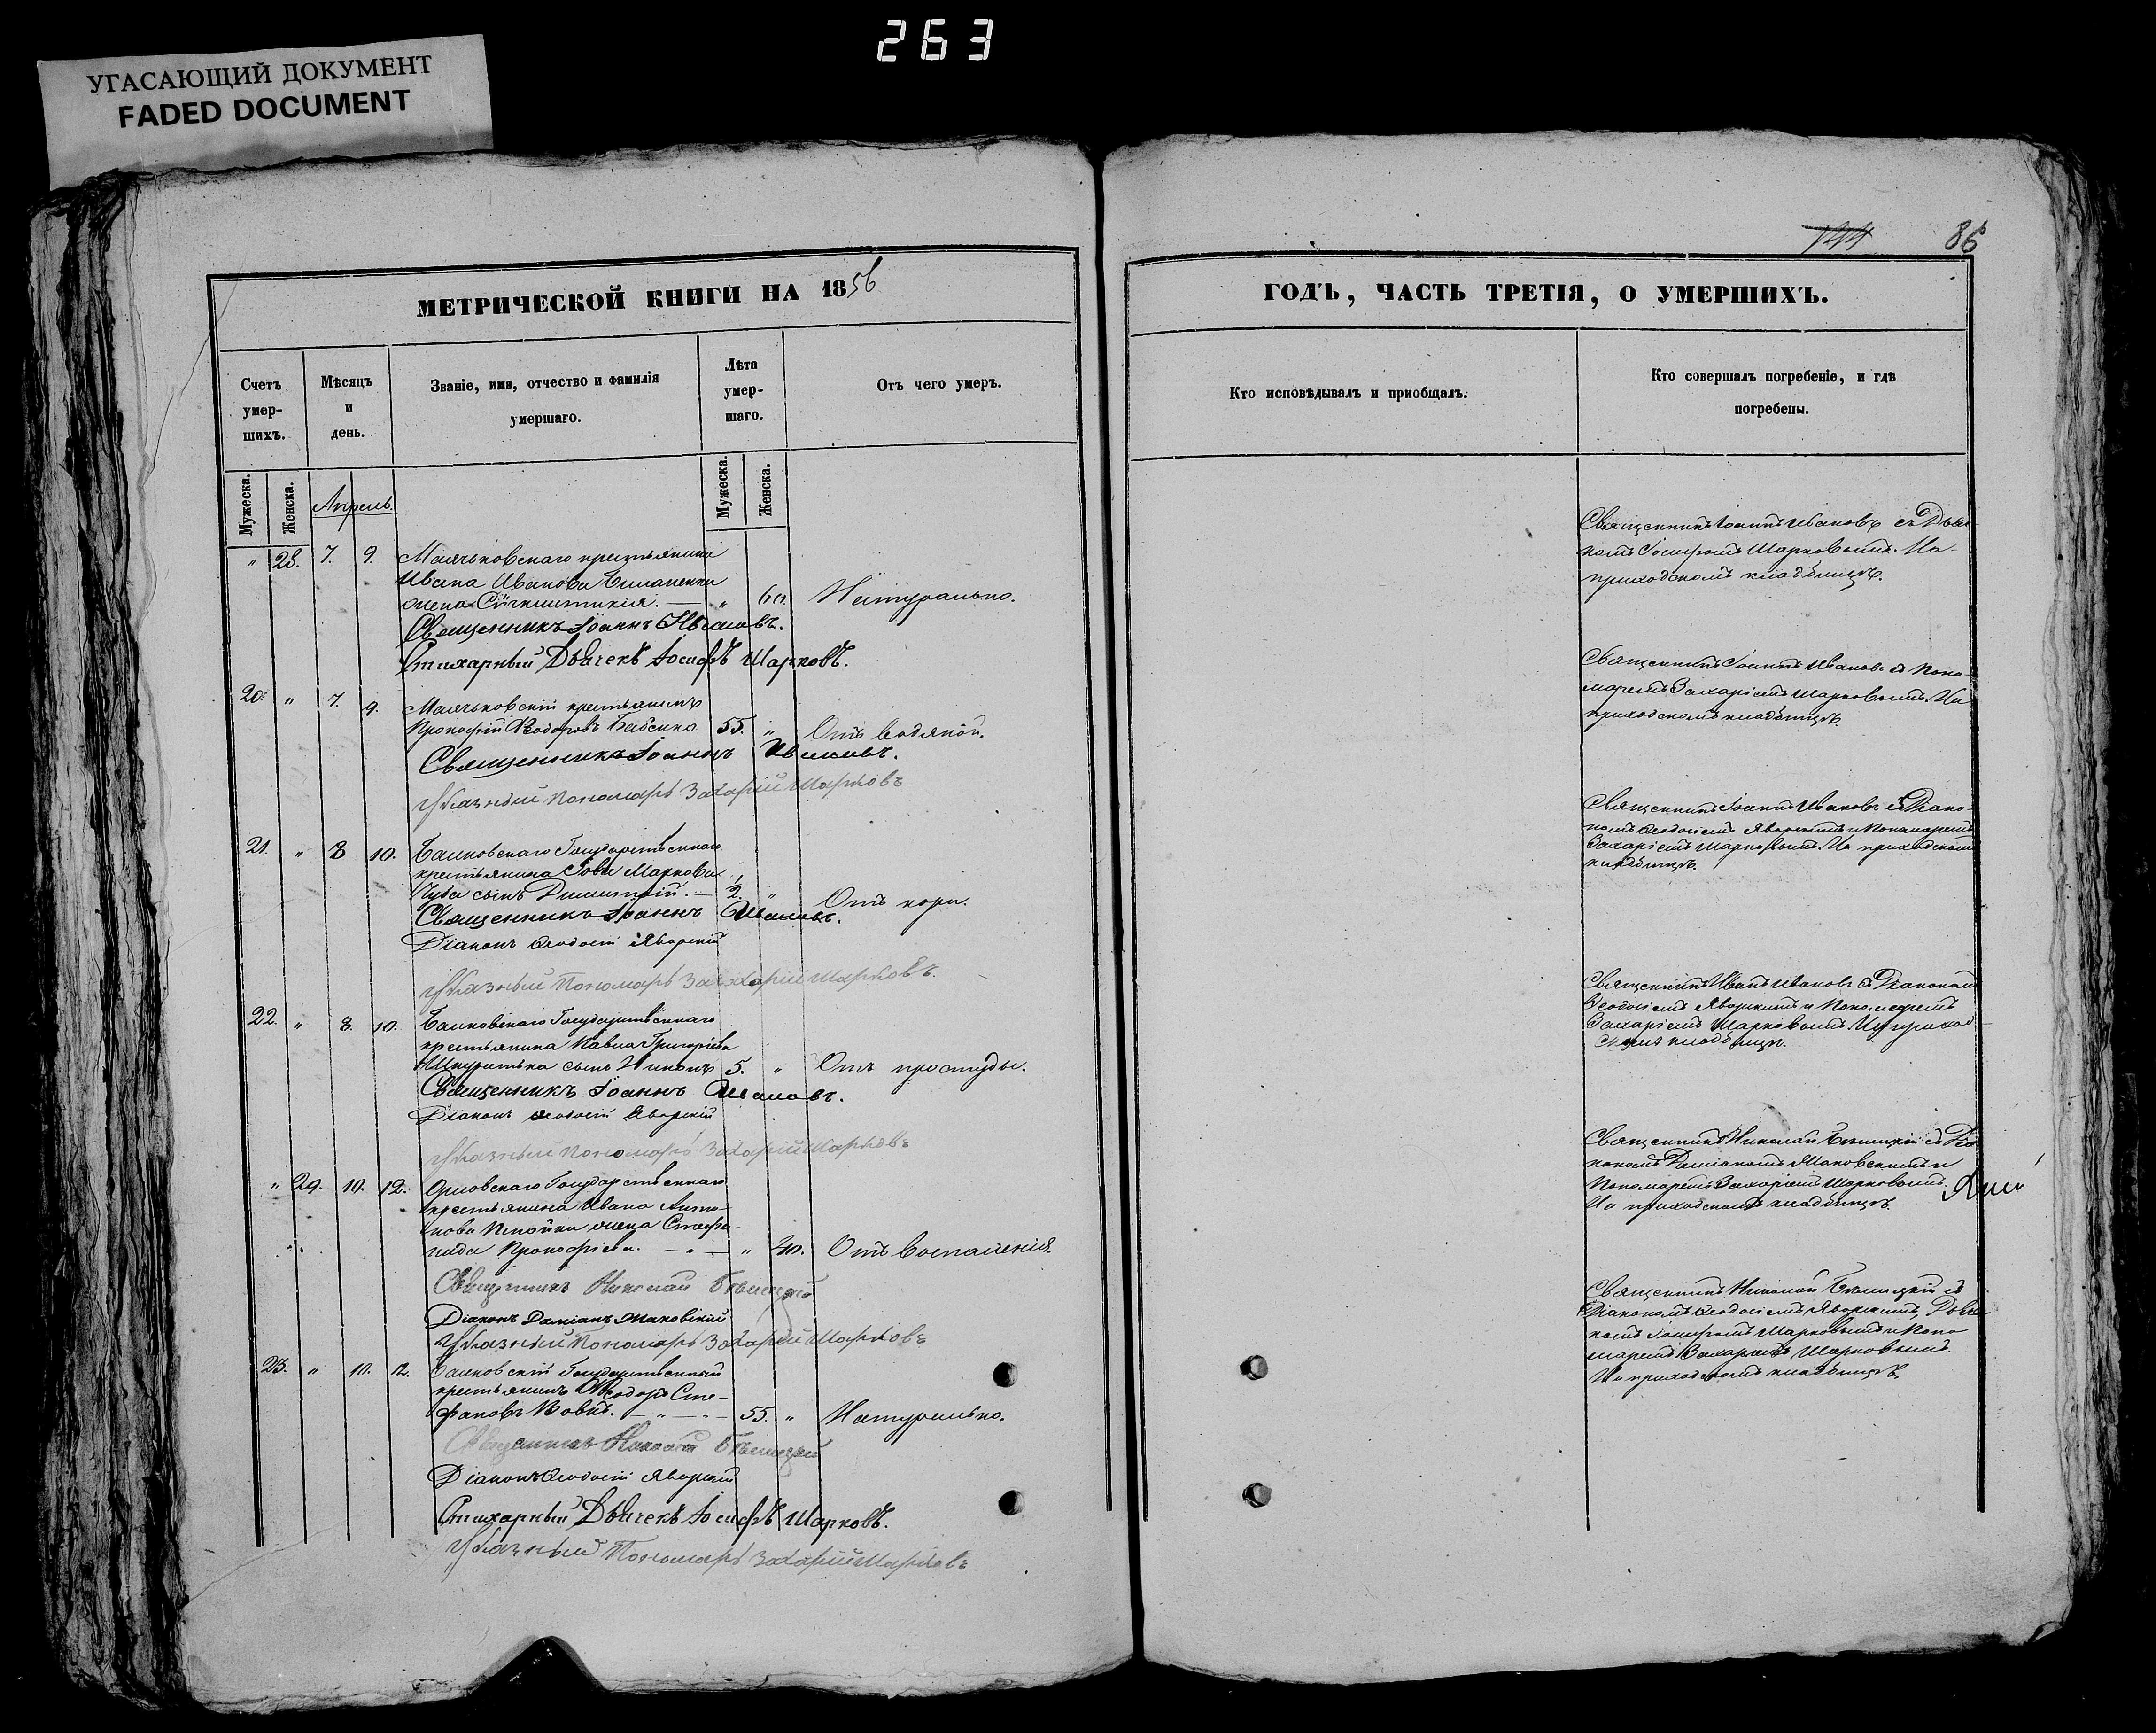 263
УГАСАЮЩИЙ ДОКУМЕНТ
FADED DOCUMENT
86
МЕТРИЧЕСКОЙ КНИГИ НА 1856
ГОДЪ, ЧАСТЬ ТРЕТІЯ, О УМЕРШИХЪ.
Счетъ умер-шихъ.
Мѣсяцъ и день.
Званіе, имя, отчество и фамилія умершаго.
Лѣта умер-шаго.
Отъ чего умеръ.
Кто исповѣдывалъ и пріобщалъ.
Кто совершалъ погребеніе, и гдѣ погребены.
Мужеска. Женска. Апрель. Мужеска. Женска.
" 28. 7. 9. Маячьковскаго крестьянина
Ивана Иванова
жена 60. Натурально.
Священникъ Іоаннъ Ивановъ.
Стихарный Дьячекъ Іосифъ Шарковъ.
Священникъ Іоаннъ Ивановъ съ Дьяч-
комъ Іосифомъ Шарковымъ. На
приходскомъ кладбищѣ.
20. " 7. 9. Маячьковскій крестьянинъ
Прокофій Ѳеодоровъ Бабенко 55. " Отъ водяной.
Священникъ Іоаннъ Ивановъ.
Указный Пономарь Захарій Шарковъ
Священникъ Іоаннъ Ивановъ съ Поно-
маремъ Захаріемъ Шарковымъ. На
приходскомъ кладбищѣ.
21. " 8 10. Государственнаго
крестьянина Іова Маркова
Чуба сынъ Димитрій. 1/2. " Отъ кори.
Священникъ Іоаннъ Ивановъ.
Діаконъ Ѳеодосій Яворскій
Указный Пономарь Захарій Шарковъ.
Священникъ Іоаннъ Ивановъ съ Діако-
номъ Ѳеодосіемъ Яворскимъ и Пономаремъ
Захаріемъ Шарковымъ. На приходскомъ
кладбищѣ.
22. " 8. 10. Государственнаго
крестьянина Павла Григорьева
сынъ Никонъ 5. " Отъ простуды.
Священникъ Іоаннъ Ивановъ.
Діаконъ Ѳеодосій Яворскій
Указный Пономарь Захарій Шарковъ
Священникъ Иванъ Ивановъ съ Діакономъ
Ѳеодосіемъ Яворскимъ и Пономаремъ
Захаріемъ Шарковымъ. На приход-
кладбищѣ.
" 29. 10. 12. Орловскаго Государственнаго
крестьянина Ивана Анто-
нова жена Стефа-
нида Прокофіева. " 40. Отъ воспаленія.
Священникъ Николай Бѣлицкій
Діаконъ Даміанъ Маковскій
Указный Пономарь Захарій Шарковъ
Священникъ Николай Бѣлицкій съ Діа-
кономъ Даміаномъ Маковскимъ и
Пономаремъ Захаріемъ Шарковымъ.
На приходскомъ кладбищѣ.
23. " 10. 12. Государственный
крестьянинъ Ѳеодоръ Сте-
фановъ Вовкъ. 55. " Натурально.
Священникъ Николай Бѣлицкій
Діаконъ Ѳеодосій Яворскій
Стихарный Дьячекъ Іосифъ Шарковъ.
Указный Пономарь Захарій Шарковъ
Священникъ Николай Бѣлицкій съ
Діакономъ Ѳеодосіемъ Яворскимъ, Дьяч-
комъ Іосифомъ Шарковымъ и Поно-
маремъ Захаріемъ Шарковымъ.
На приходскомъ кладбищѣ.